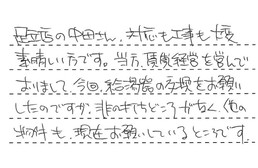 足立店の中田さん、対応も工事も大変
素晴しい方です。当方、賃貸経営を営んで
おりまして、今回、給湯器の交換をお願い
したのですが、非の打ちどころがなく、他の
物件も、現在お願いしているところです。